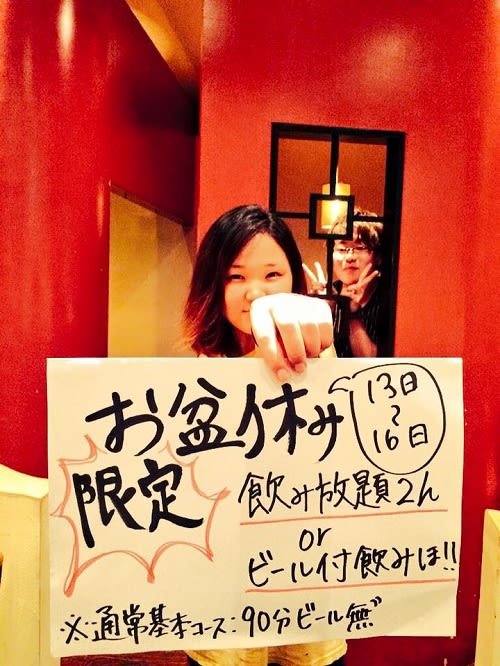 お盆休み
13日
〜
16日
限定
飲み放題2h
or
ビール付飲みほ!!
※通常基本コース:90分ビール無